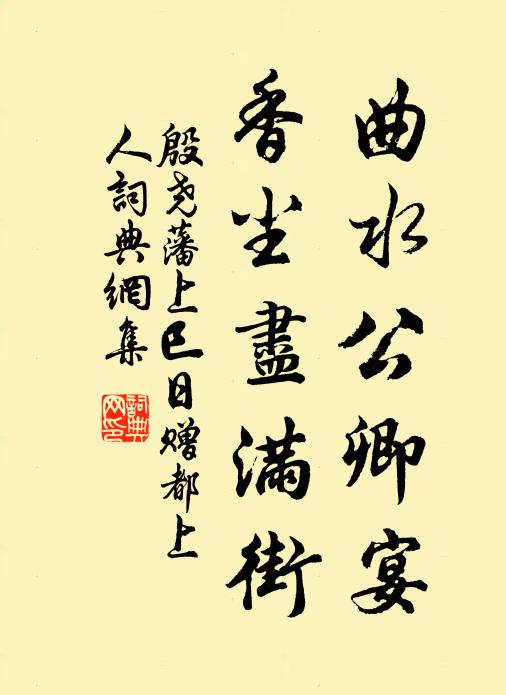 曲水公卿宴
香尘盡满街
殷尧藩上巳日赠都上
人詞典網集
詞典
网印